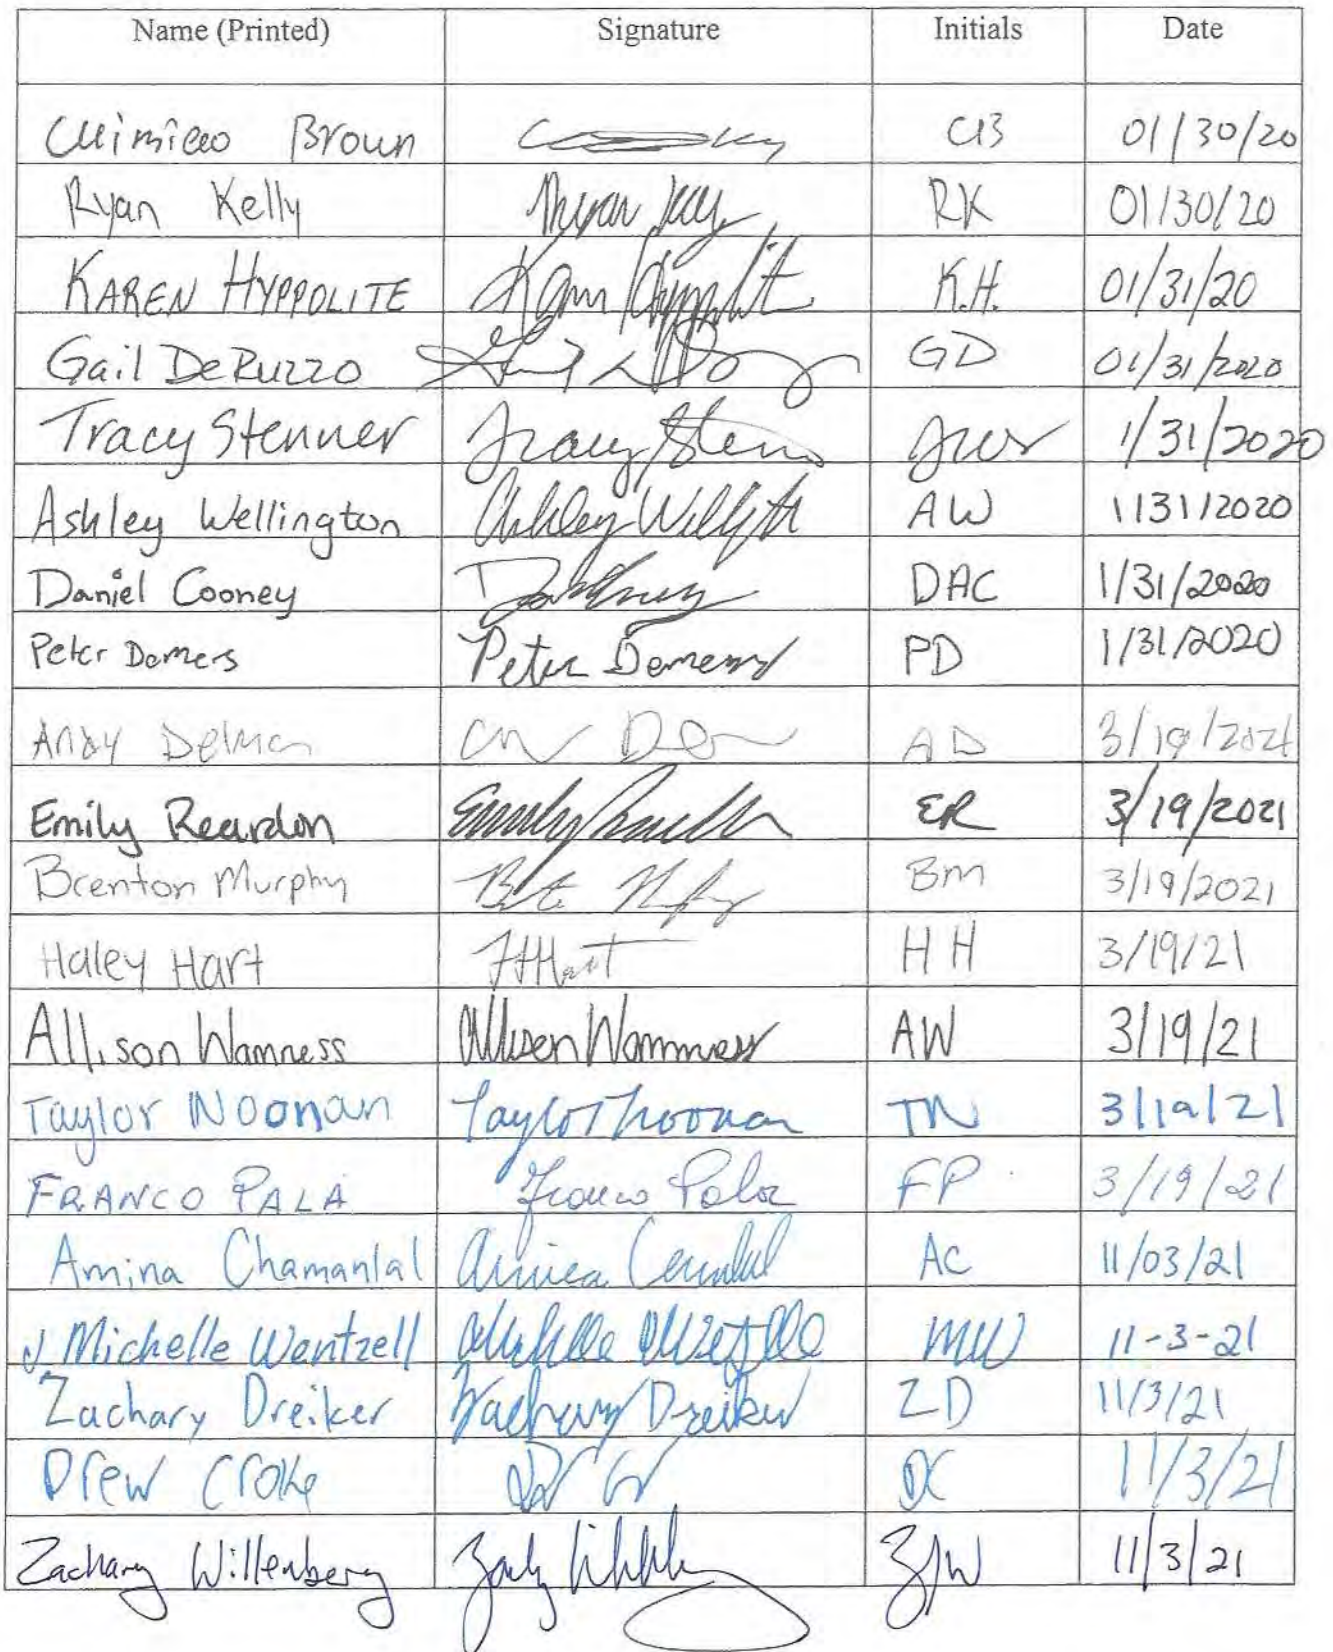 Name (Printed) Signature Initials Date
Brown CB 01/30/20
Ryan Kelly RK 01/30/20
KAREN HYPPOLITE Karen Hyppolite K.H. 01/31/20
Gail DeRuzzo GD 01/31/2020
Tracy Stenner Tracy Stenn 1/31/2020
Ashley Wellington Ashley AW 1/31/2020
Daniel Cooney DAC 1/31/2020
Peter Demers Peter Demers PD 1/31/2020
Andy Delman AD 3/19/2021
Emily Reardon Emily ER 3/19/2021
Brenton Murphy BM 3/19/2021
Haley Hart HHart HH 3/19/21
Allison Wamness Allison Wamness AW 3/19/21
Taylor Noonan Taylor Noonan TN 3/19/21
FRANCO PALA Franco Pala FP 3/19/21
Amina Chamanlal Amina AC 11/03/21
J Michelle Wentzell Michelle MW 11-3-21
Zachary Dreiker Zachary Dreiker ZD 11/3/21
Drew Croke DC 11/3/21
Zachary Willenberg ZJW 11/3/21